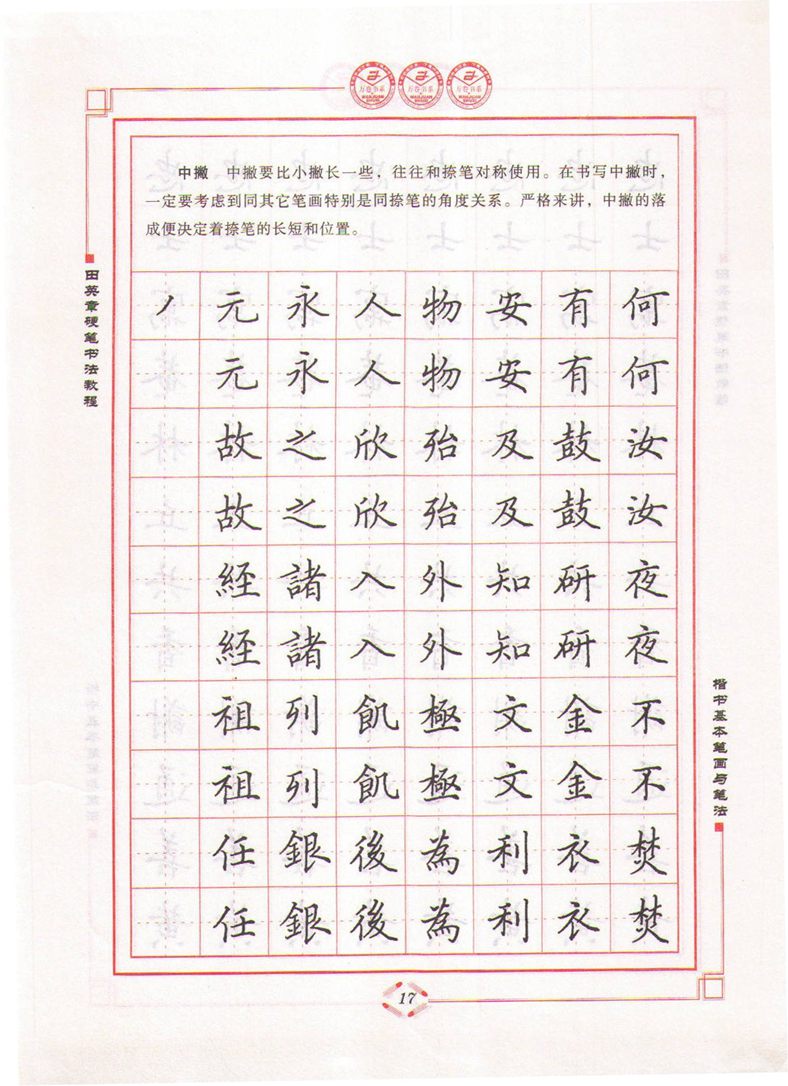 万卷书系 万卷书系 万卷书系
中撇 中撇要比小撇长一些，往往和捺笔对称使用。在书写中撇时，
一定要考虑到同其它笔画特别是同捺笔的角度关系。严格来讲，中撇的落
成便决定着捺笔的长短和位置。
田英章硬笔书法教程
丿 元 永 人 物 安 有 何
元 永 人 物 安 有 何
故 之 欣 殆 及 鼓 汝
故 之 欣 殆 及 鼓 汝
經 諸 入 外 知 研 夜
經 諸 入 外 知 研 夜
祖 列 飢 極 文 金 不
祖 列 飢 極 文 金 不
任 銀 後 為 利 衣 焚
任 銀 後 為 利 衣 焚
楷书基本笔画与笔法
17